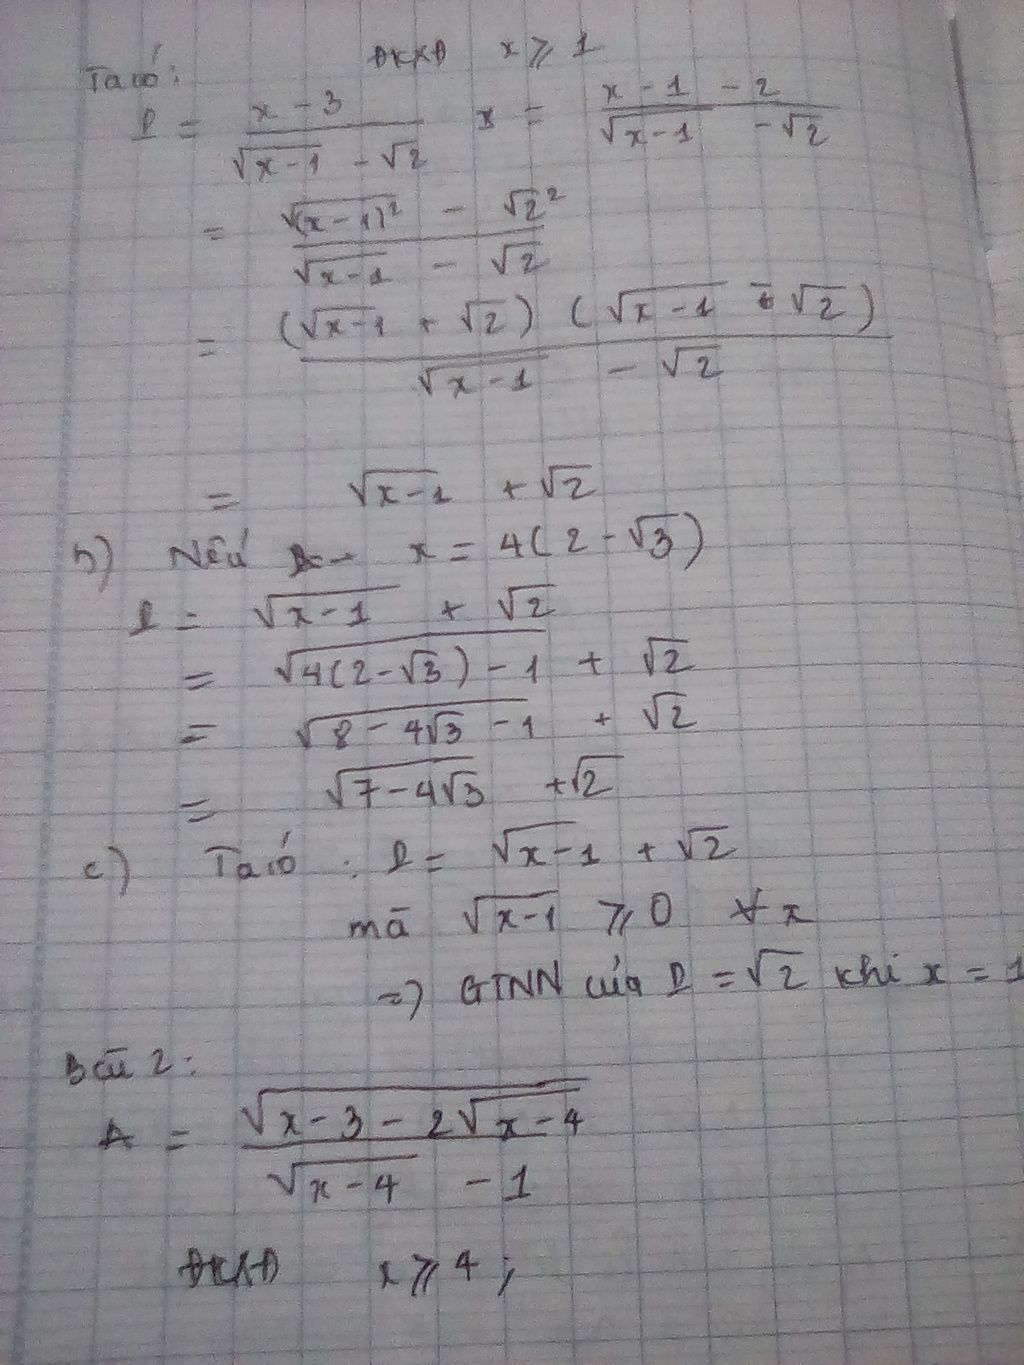 ĐKXĐ x ⩾ 1
Ta có:
P = (x - 3)/(√(x-1) - √2) = (x - 1 - 2)/(√(x-1) - √2)
= (√(x-1)² - √2²)/(√(x-1) - √2)
= (√(x-1) + √2)(√(x-1) - √2)/(√(x-1) - √2)
= √(x-1) + √2
b) Nếu x = 4(2 - √3)
P = √(x-1) + √2
= √(4(2-√3) - 1) + √2
= √(8 - 4√3 - 1) + √2
= √(7 - 4√3) + √2
c) Ta có: P = √(x-1) + √2
mà √(x-1) ⩾ 0 ∀x
=> GTNN của P = √2 khi x = 1
Bài 2:
A = √(x - 3 - 2√(x-4))/(√(x-4) - 1)
ĐKXĐ x ⩾ 4;